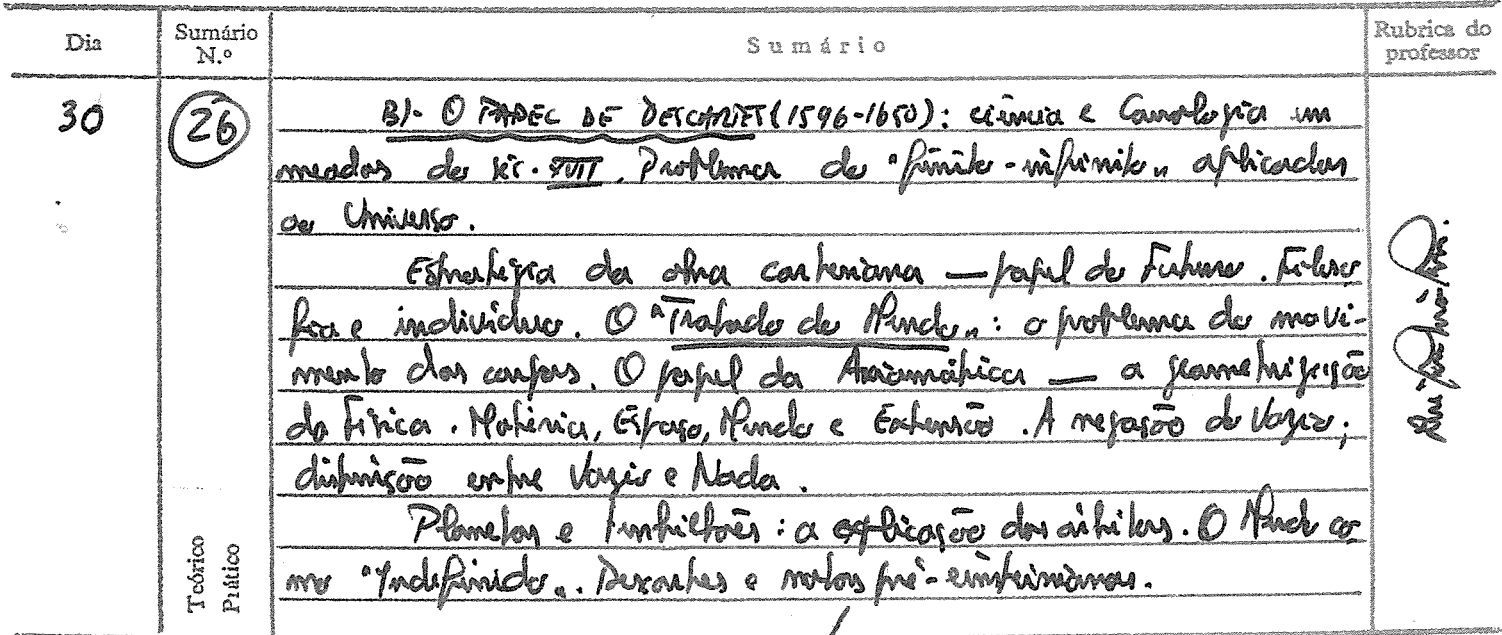 Dia
Sumário N.º
Sumário
Rubrica do professor
30
26
B)- O PAPEL DE DESCARTES (1596-1650): ciência e Cosmologia em
meados do séc. XVII. Problemas do "finito-infinito" aplicados
ao Universo.
Estratégia da obra cartesiana — papel do Futuro. Filoso
fia e indivíduo. O "Tratado do Mundo": o problema do movi-
mento dos corpos. O papel da Matemática — a geometrização
da Física. Matéria, Espaço, Mundo e Extensão. A negação do Vazio;
distinção entre Vazio e Nada.
Planetas e Turbilhões: a explicação das órbitas. O Mundo co
mo "Indefinido". Descartes e notas pré-einsteinianas.
Teórico
Prático